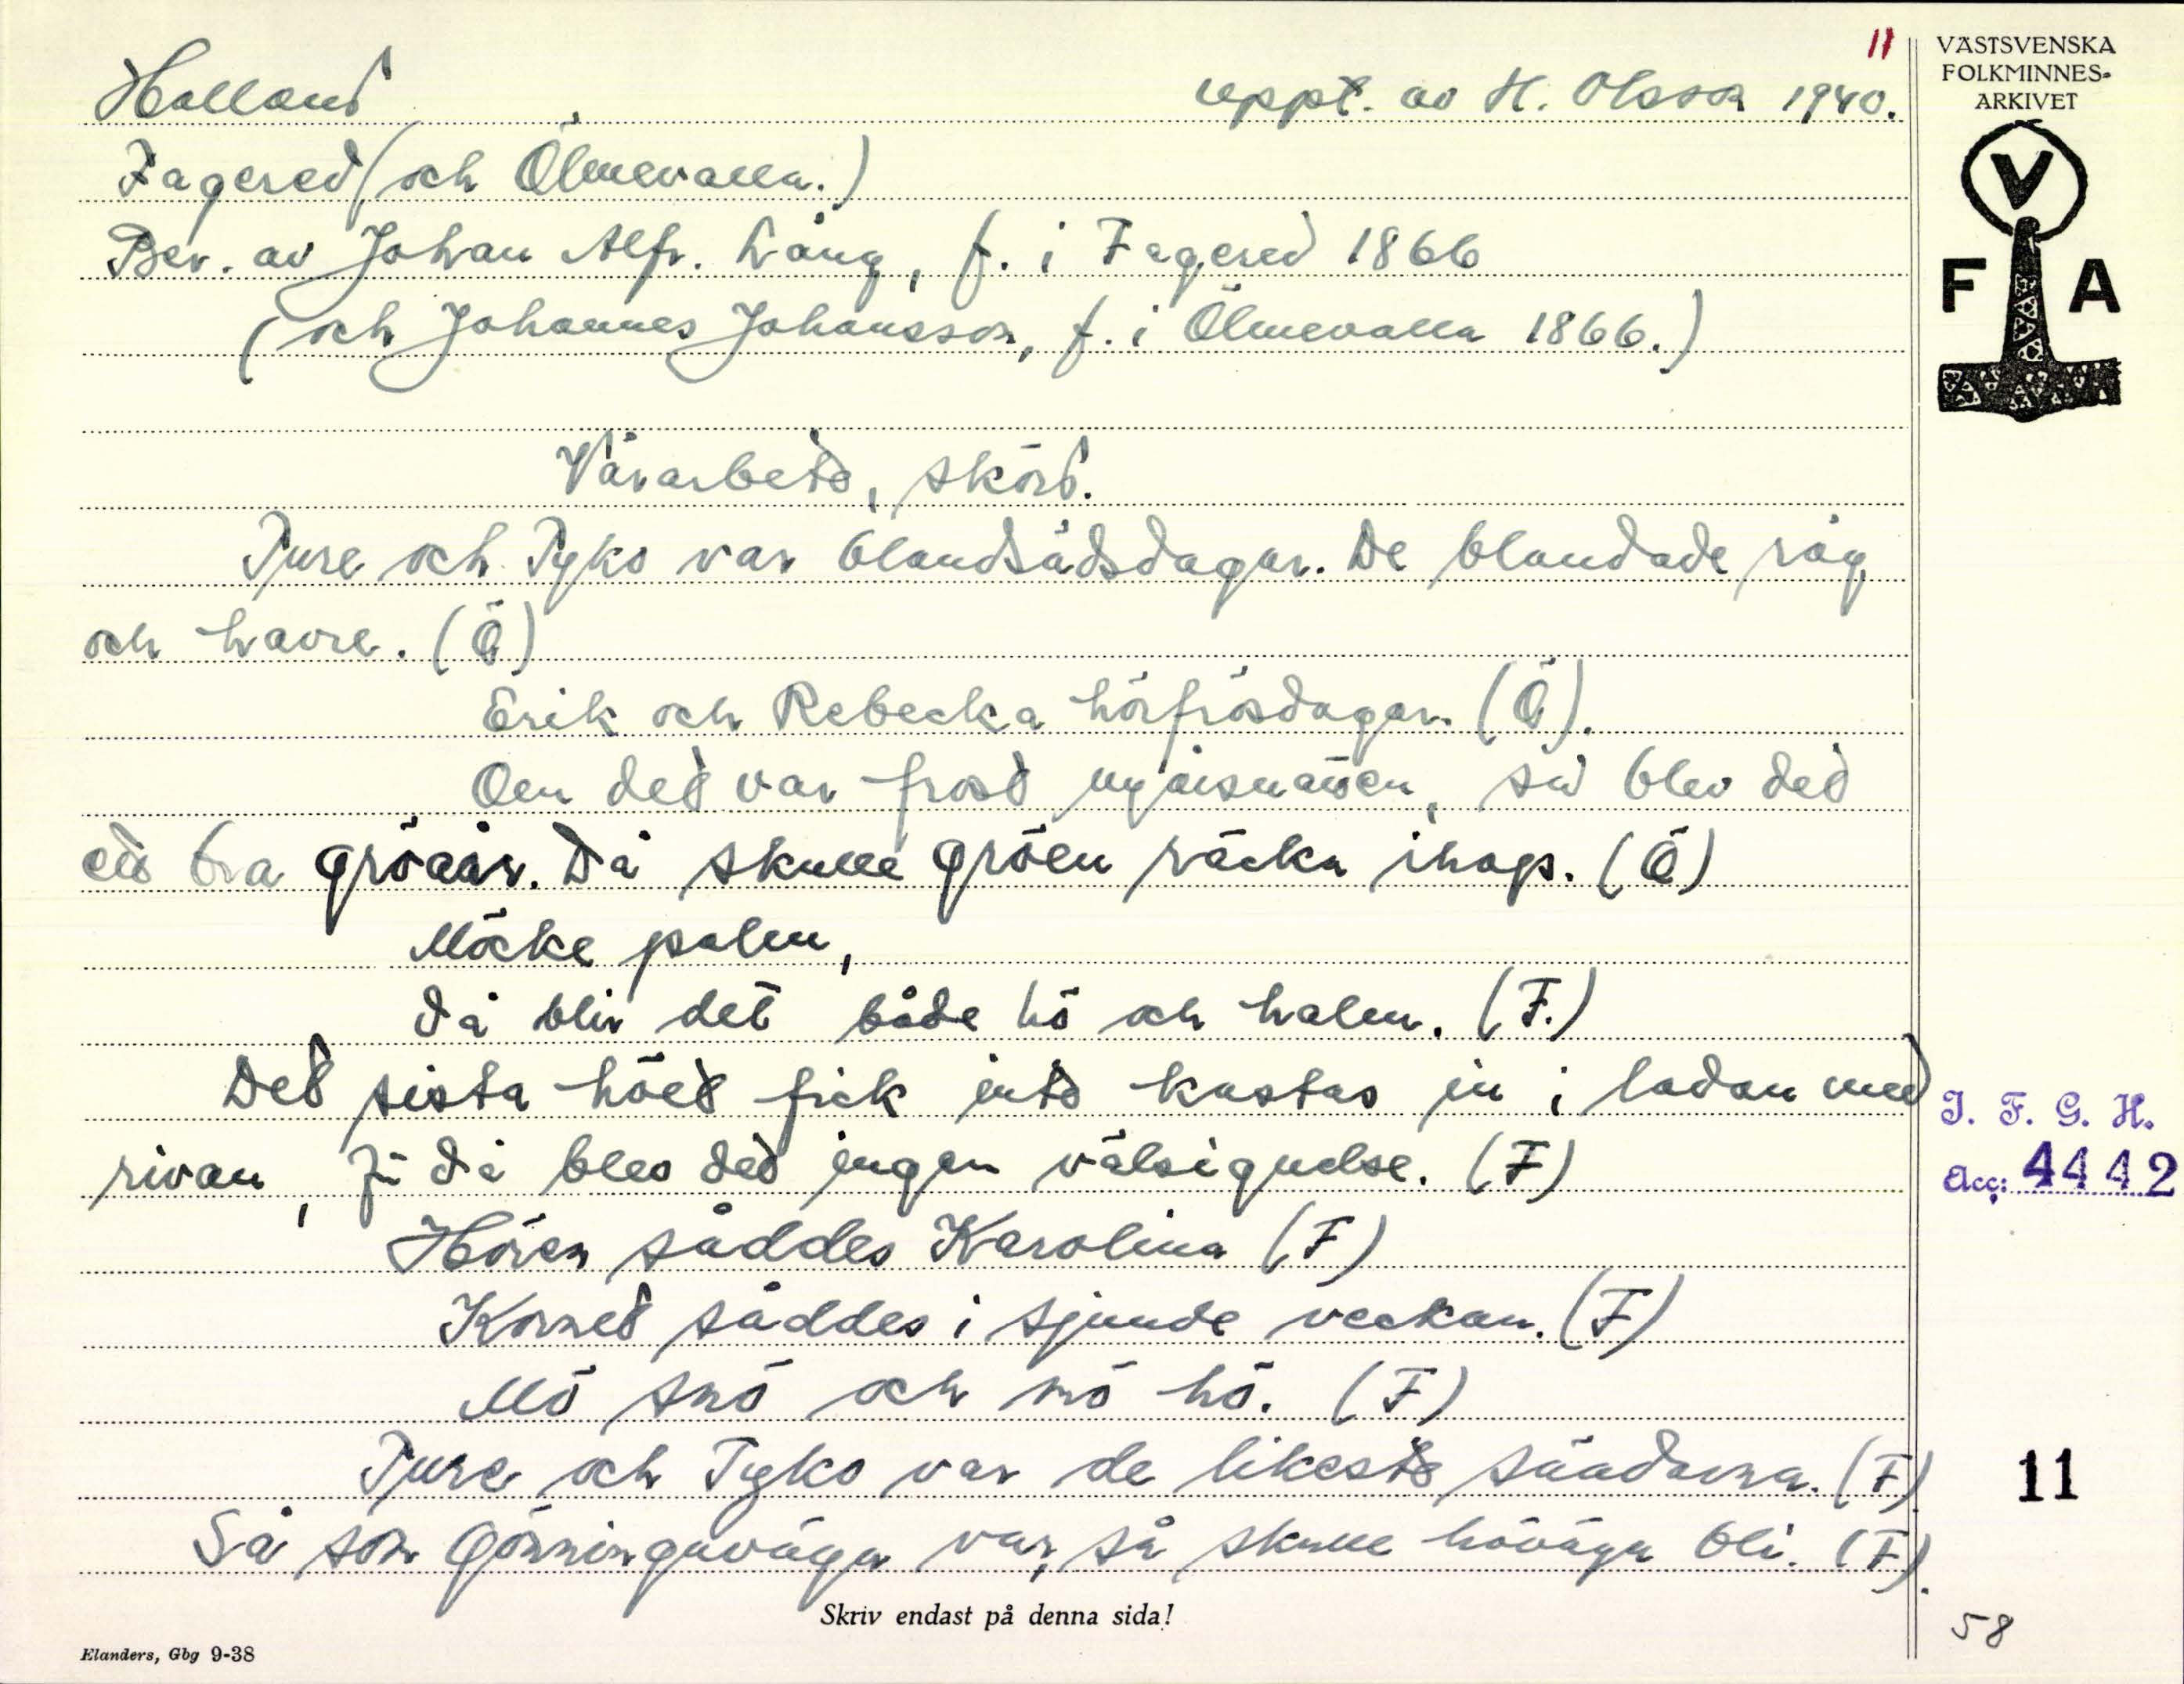 11
VÄSTSVENSKA
FOLKMINNES-
ARKIVET
V
F A
Halland uppt. av H. Olsson 1940.
Fagered (och Ölmevalla.)
Ber. av Johan Alfr. Lång, f. i Fagered 1866
(och Johannes Johansson, f. i Ölmevalla 1866.)
Vårarbete, skörd.
Ture och Tyko var blandsådsdagar. De blandade råg
och havre. (Ö)
Erik och Rebecka hörfrösdagar. (Ö).
Om det var frost nyårsnatten, så blev det
ett bra gröaår. Då skulle gröen räcka ihop. (Ö)
Möcke palm,
då blir det både hö och halm. (F.)
Det sista höet fick inte kastas in i ladan med
rivan, för då blev det ingen välsignelse. (F)
Hören såddes Karolina (F)
Kornet såddes i sjunde veckan. (F)
Mö snö och mö hö. (F)
Ture och Tyko var de likeste såadarna. (F)
Så som gönningavägen var, så skulle höväga bli. (F).
I. F. G. H.
Acc: 4442
11
58
Skriv endast på denna sida!
Elanders, Gbg 9-38